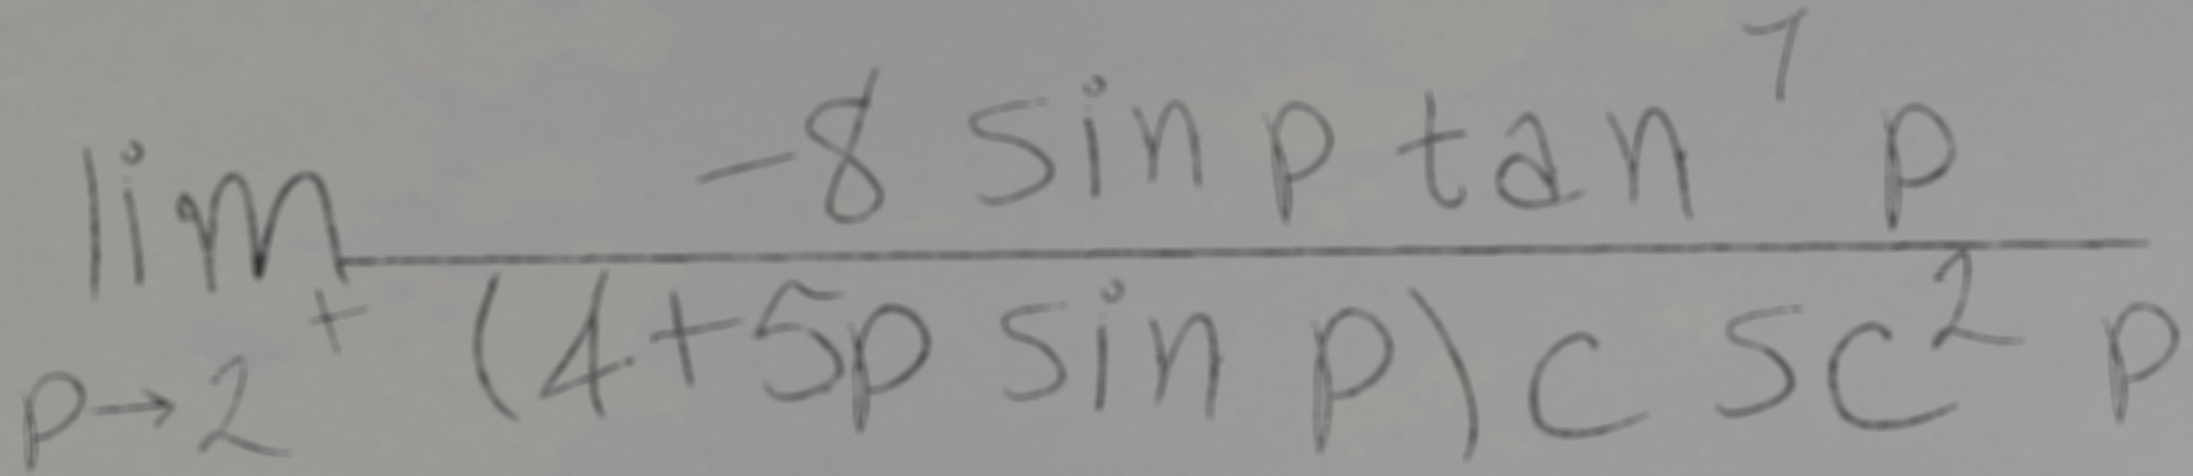 \lim_{p \to 2^+} \frac{-8 \sin p \tan^7 p}{(4+5p \sin p) \csc^2 p}